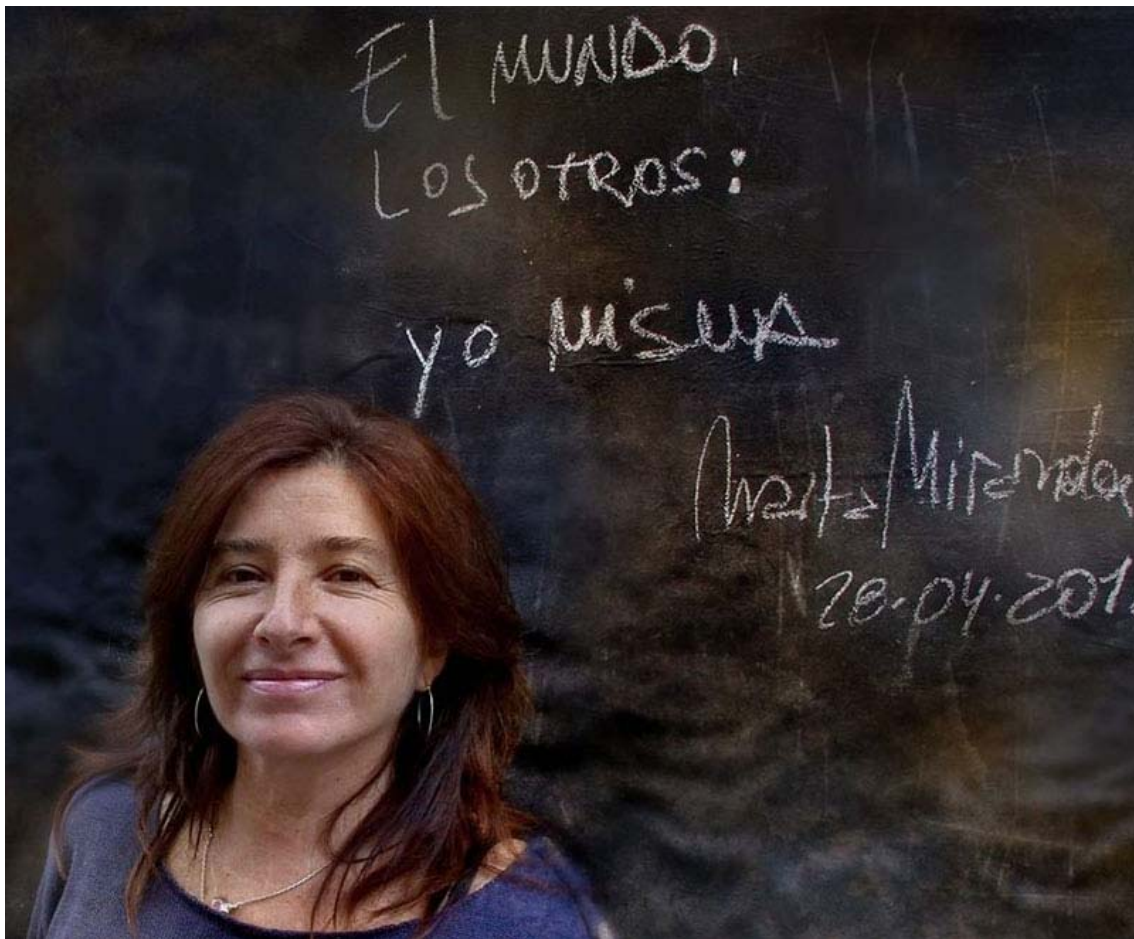 El MUNDO,
Los otros:
yo misma
Marta Miranda
28.04.201